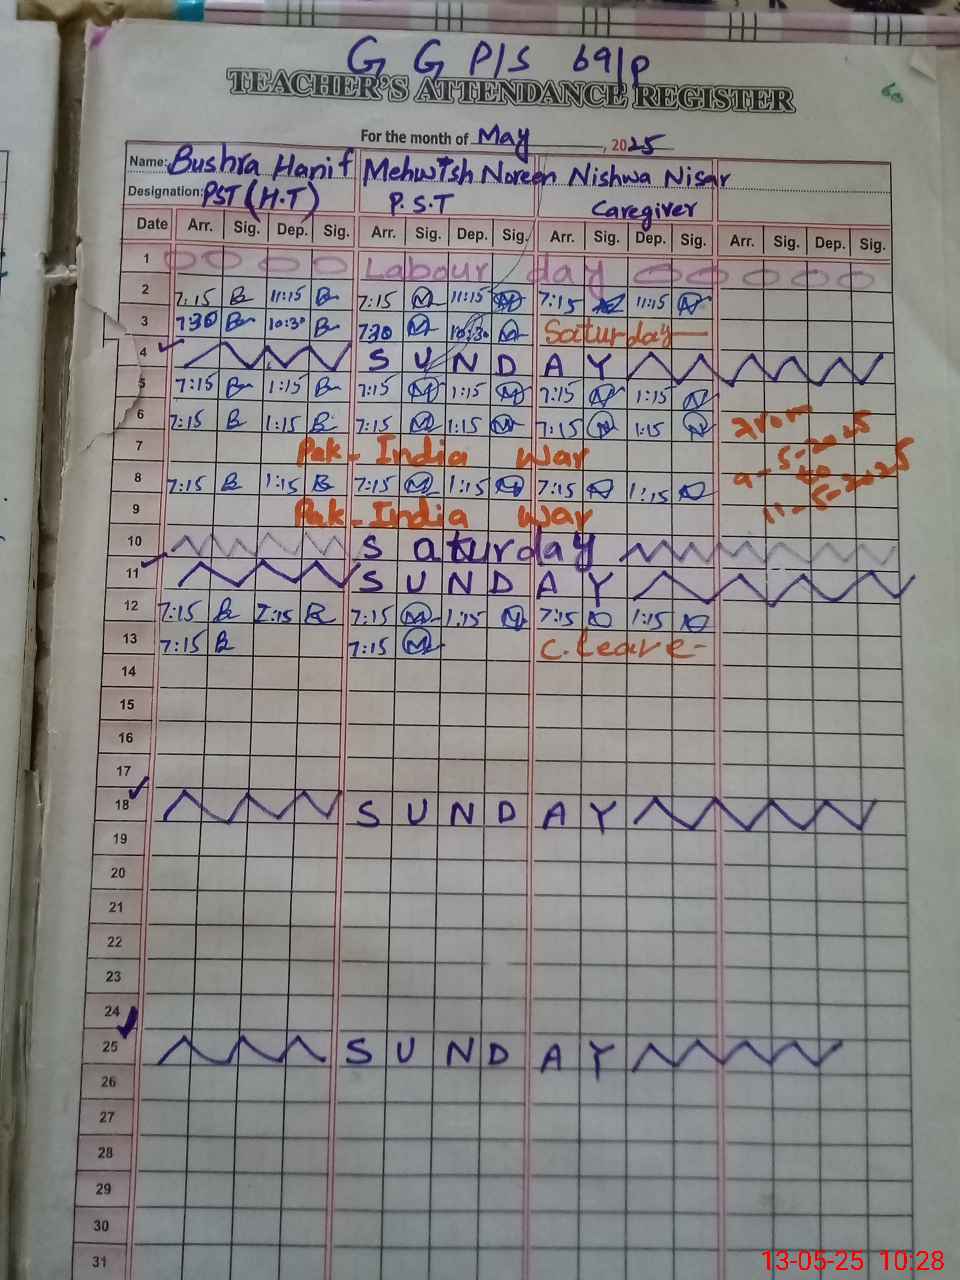 G G P/S 69/P
TEACHER'S ATTENDANCE REGISTER
For the month of May, 2025
Name: Bushra Hanif Mehwish Noreen Nishwa Nisar
Designation: PST (H.T) P.S.T Caregiver
Date Arr. Sig. Dep. Sig. Arr. Sig. Dep. Sig. Arr. Sig. Dep. Sig. Arr. Sig. Dep. Sig.
1 Labour day
2 7:15 B 11:15 B 7:15 M 11:15 M 7:15 N 11:15 N
3 730 B 10:30 B 730 M 10:30 M Saturday
4 SUNDAY
5 7:15 B 1:15 B 7:15 M 1:15 M 7:15 N 1:15 N
6 7:15 B 1:15 B 7:15 M 1:15 M 7:15 N 1:15 N
7 Pak-India War
8 7:15 B 1:15 B 7:15 M 1:15 M 7:15 N 1:15 N
9 Pak-India War
from
9-5-2025
to
11-5-2025
10 Saturday
11 SUNDAY
12 7:15 B 1:15 B 7:15 M 1:15 M 7:15 N 1:15 N
13 7:15 B 7:15 M C. leave-
14
15
16
17
18 SUNDAY
19
20
21
22
23
24
25 SUNDAY
26
27
28
29
30
31
13-05-25 10:28